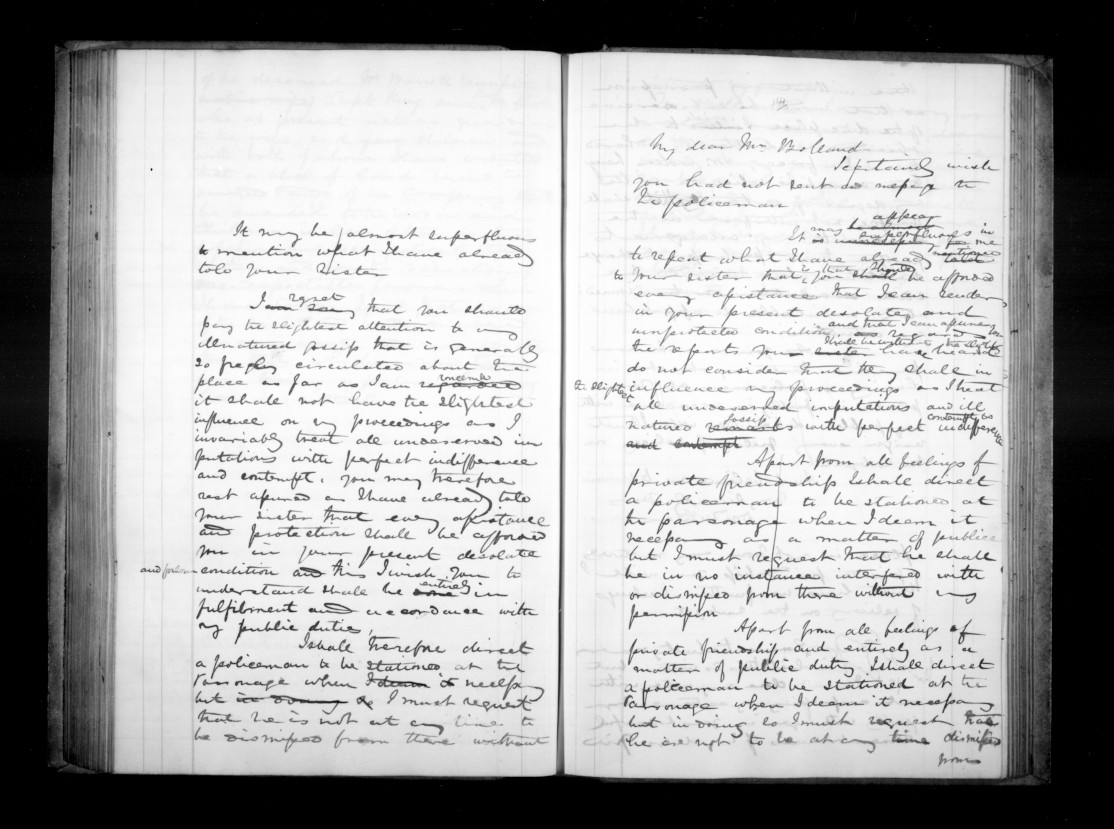 It may be almost superfluous
to mention what I have already
told your sister
regret
I am sorry that you should
pay the slightest attention to any
illnatured gossip that is generally
so freely circulated about the
place as far as I am regarded concerned
it shall not have the slightest
influence on my proceedings as I
invariably treat all undeserved im
putations with perfect indifference
and contempt. You may therefore
rest assured as I have already told
your sister that every assistance
and protection shall be afforded
you in your present desolate
and forlorn condition and this I wish you to
entirely
understand shall be done in
fulfilment and accordance with
my public duties,
I shall therefore direct
a policeman to be stationed at the
Parsonage when I deem it necessary
but in doing so I must request
that he is not at any time to
be dismissed from there without
My dear Mrs Bolland
I certainly wish
you had not sent a message to
the policeman
appear
It is may superfluous in me
to repeat what I have already told mentioned
to your sister that you shall should be afforded
every assistance that I can render
in your present desolate and
unprotected condition and that I can assure you
the reports your sister have heard
do not consider that they shall in
the slightest influence my proceedings as I treat
all undeserved imputations and ill
gossip contemptuous
natured remarks with perfect indifference
and contempt
Apart from all feelings of
private friendship I shall direct
a policeman to be stationed at
the parsonage when I deem it
necessary as a matter of public
but I must request that he shall
be in no instance interfered with
or dismissed from there without my
permission
Apart from all feelings of
private friendship and entirely as a
matter of public duty I shall direct
a policeman to be stationed at the
Parsonage when I deem it necessary
but in doing so I must request that
he is not to be at any time dismissed
from